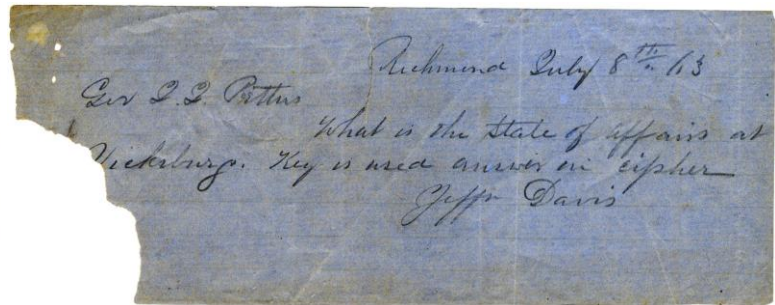 Richmond July 8th 63
Gov J. J. Pettus
What is the State of affairs at
Vicksburg. Key is used answer in cipher
Jeffn Davis